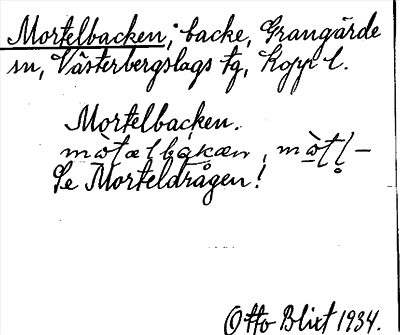 Mortelbacken; backe, Grangärde
sn, Västerbergslags tg, Kopp l.
Mortelbacken.
mòtælbakæn, mòtl-
Se Morteldrågen!
Otto Blixt 1934.